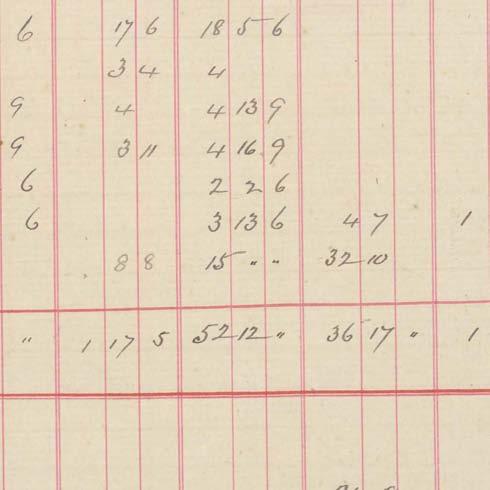 6 17 6 18 5 6
3 4 4
9 4 4 13 9
9 3 11 4 16 9
6 2 2 6
6 3 13 6 4 7 1
8 8 15 " " 32 10
" 1 17 5 52 12 " 36 17 " 1